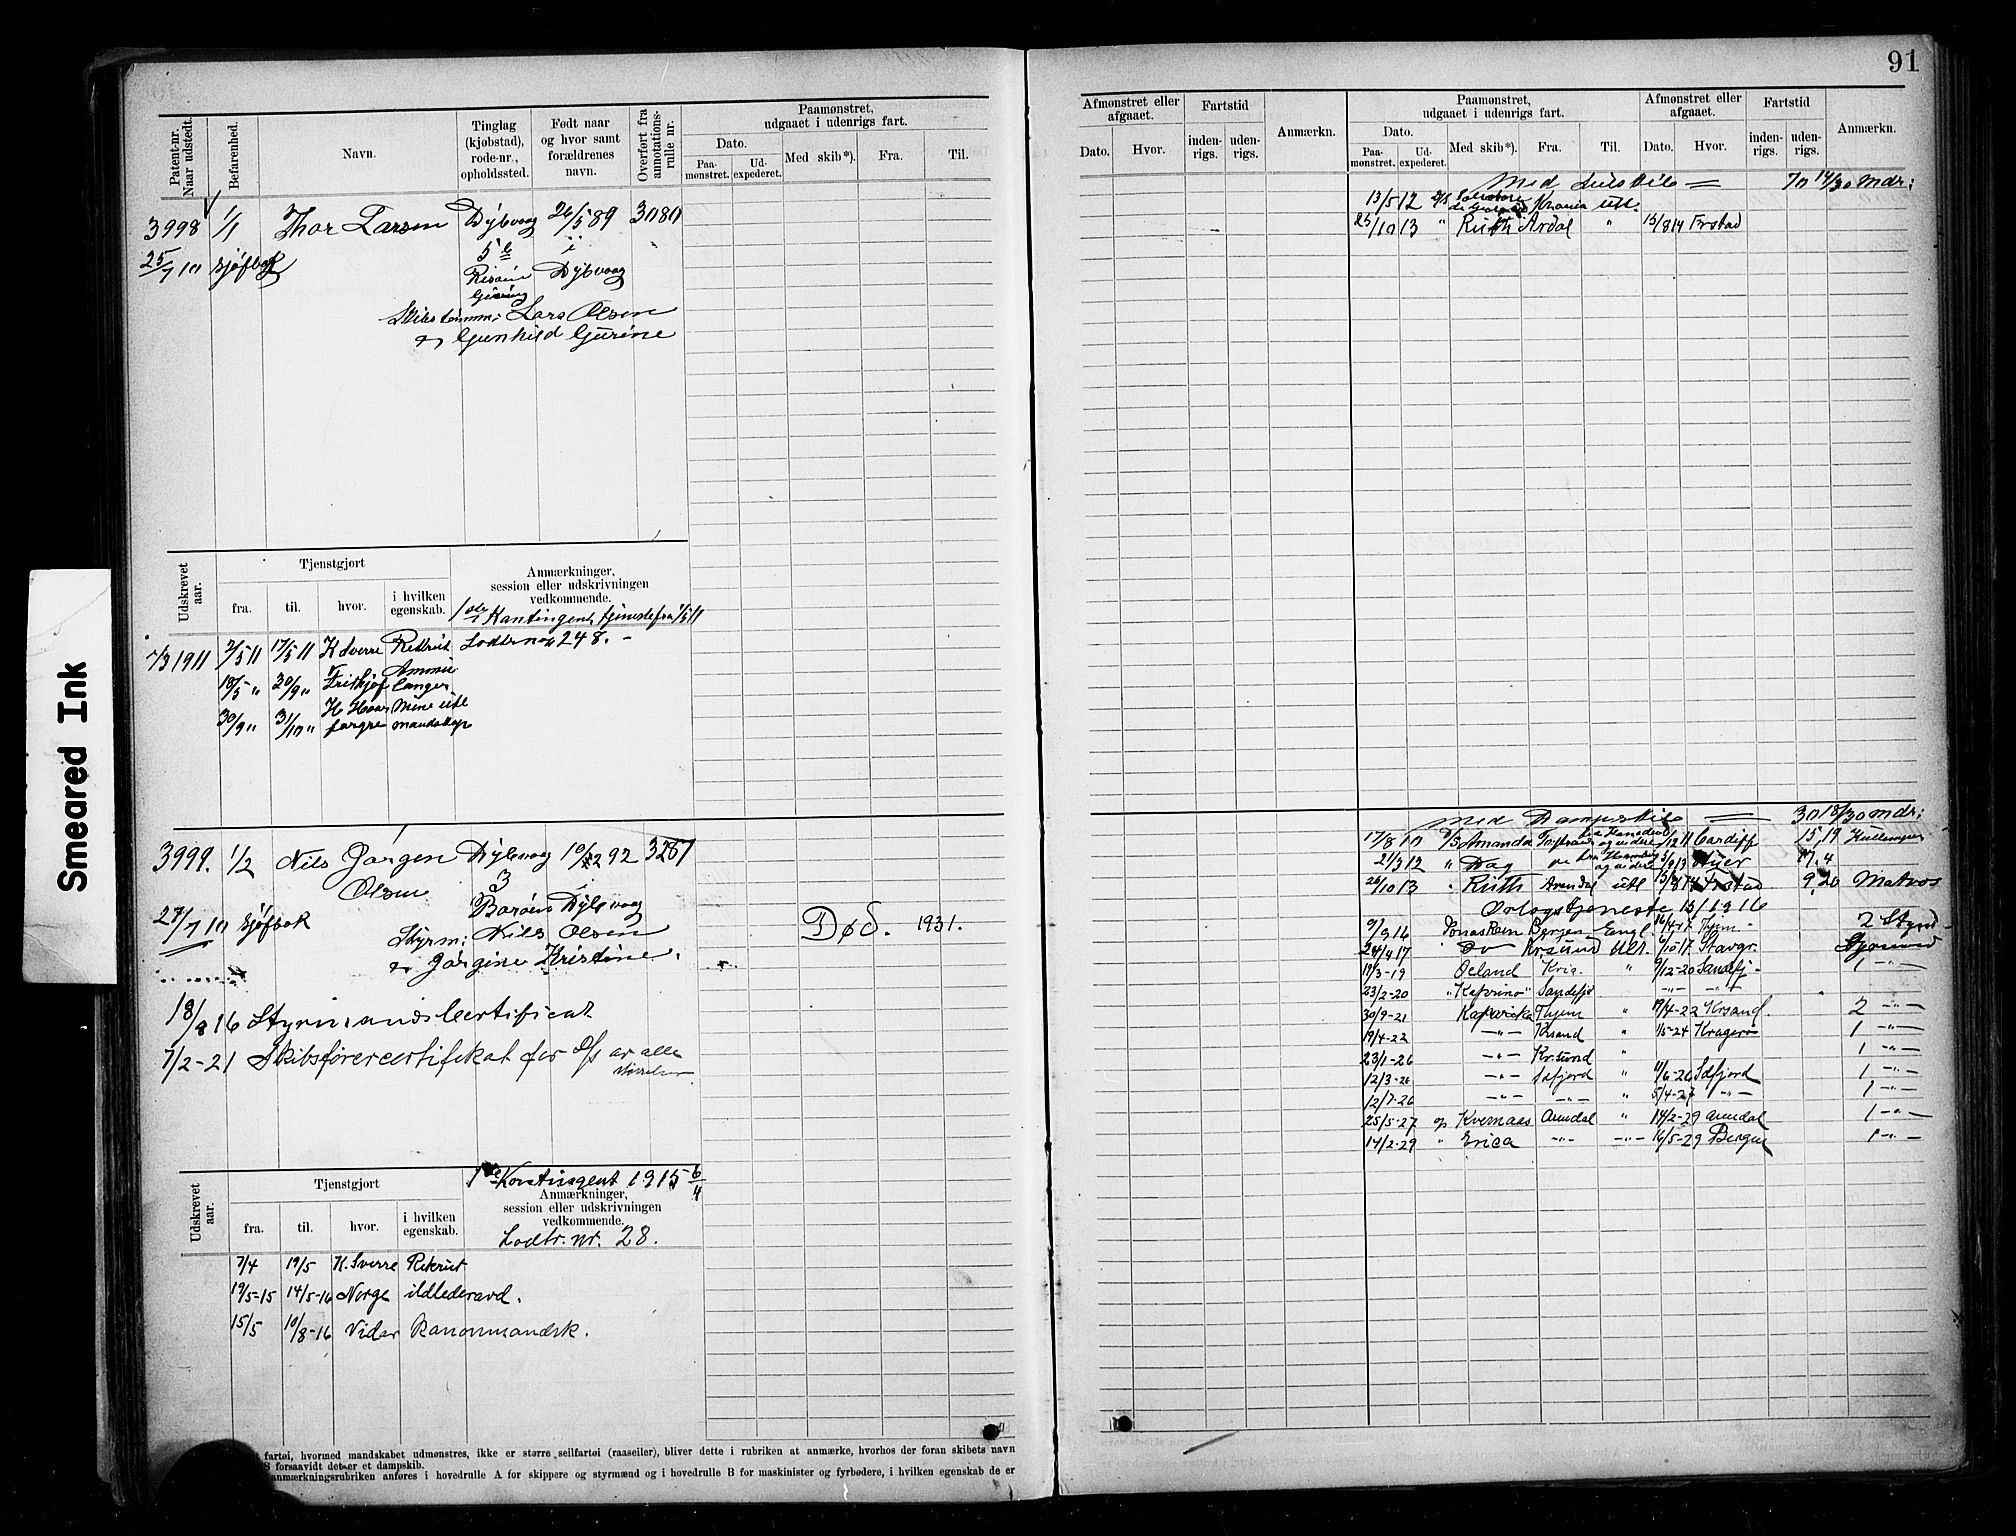 91
Patent-nr. Naar udstedt.
Befarenhed.
Navn.
Tinglag (kjøbstad), rode-nr., opholdssted.
Født naar og hvor samt forældrenes navn.
Overført fra annotations-rulle nr.
Paamønstret, udgaaet i udenrigs fart.
Dato.
Paa-mønstret.
Ud-expederet.
Med skib*).
Fra.
Til.
3998 1/1 Thor Larsen Dybvaag 26/5 89 3080
5 i
25/7 10 Sjøfbok Risøen Dybvaag
Lars Olsen
og Gunhild Gurine
Udskrevet aar.
Tjenstgjort
fra.
til.
hvor.
i hvilken egenskab.
Anmærkninger, session eller udskrivningen vedkommende.
1ste Kontingent, tjeneste fra 1/5 11
1911 2/5 11 17/5 11 K Sverre Rekrut Lodtr no 248. -
18/5 " 30/9 " Fritjof
30/9 " 31/10 " Mine utl
mandskap
3999. 1/2 Nils Jørgen Dybvaag 92 3267
Olsen 3 i
27/7 10 Sjøfbok Borøen Dybvaag Død. 1931.
Styrm: Nils Olsen
og Jørgine Kristine.
18/8 16 Styrmandscertificat
7/2-21 Skibsførercertifikat for D/S av alle størrelser
Udskrevet aar.
Tjenstgjort
fra.
til.
hvor.
i hvilken egenskab.
1ste Kontingent 1915 6/4
Anmærkninger, session eller udskrivningen vedkommende.
Lodtr. nr. 28.
7/4 19/5 K. Sverre Rekrut
19/5-15 14/5-16 Norge ildlederavd.
15/5 10/8-16 Vidar Kanonmandsk.
fartøi, hvormed mandskabet udmønstres, ikke er større seilfartøi (raaseiler), bliver dette i rubriken at anmærke, hvorhos der foran skibets navn
S forsaavidt det er et dampskib.
anmærkningsrubriken anføres i hovedrulle A for skippere og styrmænd og i hovedrulle B for maskinister og fyrbødere, i hvilken egenskab de er
Afmønstret eller afgaaet.
Dato.
Hvor.
Fartstid
inden-rigs.
uden-rigs.
Anmærkn.
Paamønstret, udgaaet i udenrigs fart.
Dato.
Paa-mønstret.
Ud-expederet.
Med skib*).
Fra.
Til.
Afmønstret eller afgaaet.
Dato.
Hvor.
Fartstid
inden-rigs.
uden-rigs.
Anmærkn.
Med Seilskib = 70 14/30 Mdr:
13/5 12 Krania utl.
25/10 13 " Ruth Ardal " 15/8 14 Frstad
Med Dampskib = 30 18/30 Mdr:
17/8 10 D/S Amanda 11 Cardiff 15,19
21/3 12 " Dag 17.4
26/10 13 " Ruth Arendal utl 15/8 14 Frstad 9,20 Matros
Orlogstjeneste 15/1916
16 Bergen Engl 17 Tjem 2 Styrm
24/4 17 Do Krsund Utl. 6/10 17 Stavgr.
19/3-19 Oeland Kria. " 9/12-20 Sandefj. 1 -"-
23/2-20 Sandefjd -"- -"-
30/9-21 Tjem " 17/4-22 Krsand. 2 -"-
19/4-22 -"- Krsand " 15-24 Kragerø 1 -"-
23/1-26 -"- Kr.sund " 1 -"-
12/3-26 -"- Sdfjord " 11/6-26 Sdfjord 1 -"-
12/7-26 -"- -"- " 5/4-27 -"- 1 -"-
25/5-27 Kvernaas Arendal " 14/2-29 Arendal 1 -"-
14/2-29 " Erica -"- -"- 16/5-29 Bergen 1 -"-
Smeared Ink